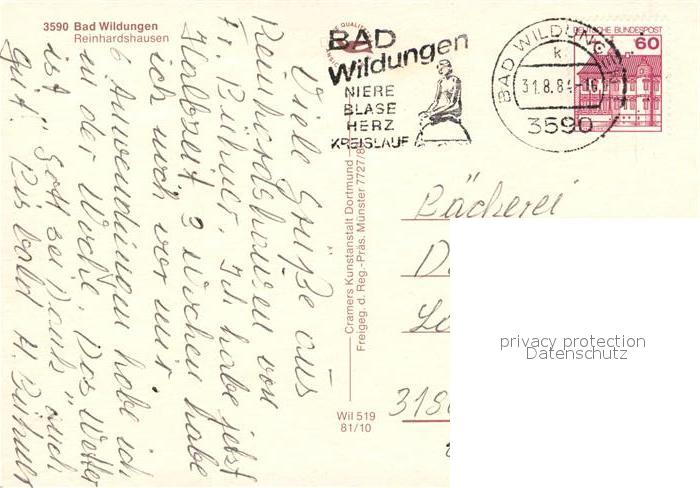 3590 Bad Wildungen
Reinhardshausen
Viele Grüße aus
Reinhardshausen von
Fr. Bühner. Ich habe jetzt
Halbzeit 3 Wochen habe
ich noch vor mir
6 Anwendungen habe ich
in der Woche. Das Wetter
ist "Gott sei Dank" auch
gut. Bis bald H. Bühner
BAD
Wildungen
NIERE
BLASE
HERZ
KREISLAUF
BAD WILDUNGEN
k
31.8.84-16
3590
DEUTSCHE BUNDESPOST
60
Cramers Kunstanstalt Dortmund
Freigeg. d. Reg.-Präs. Münster 7727/8
Wil 519
81/10
Bäckerei
privacy protection
Datenschutz